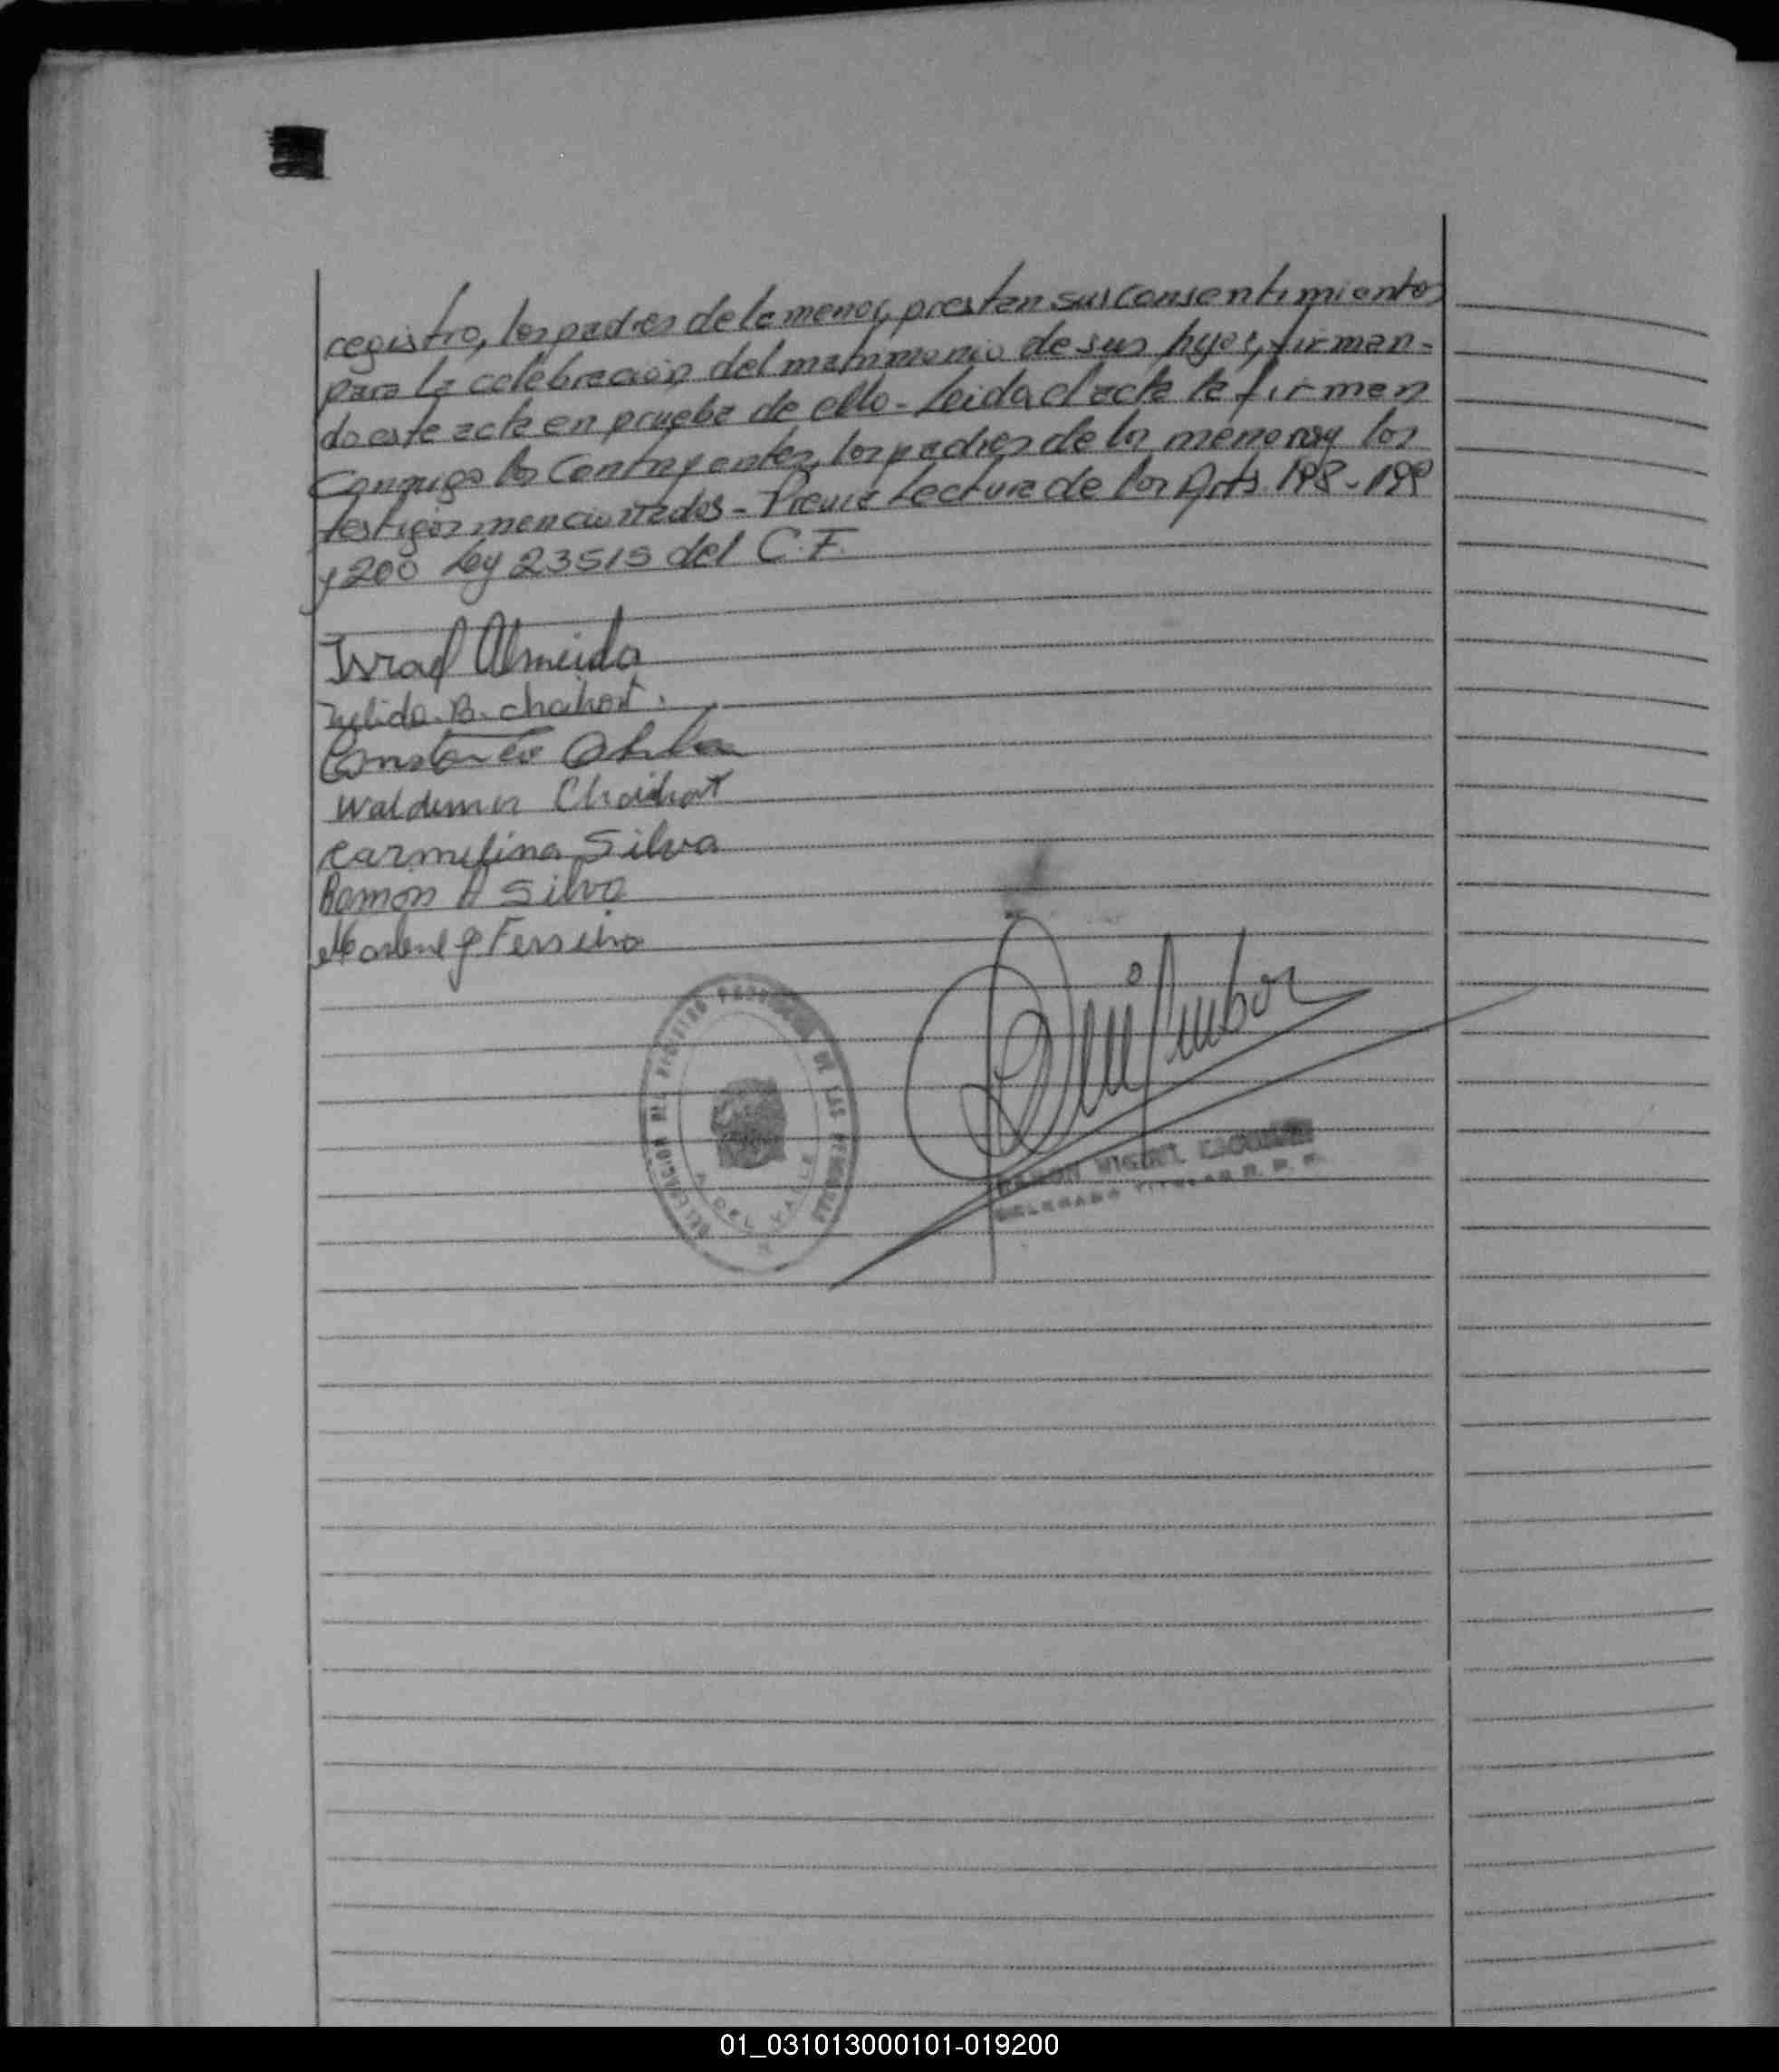 registro, los padres de la menor, prestan sus consentimientos
para la celebración del matrimonio de sus hijos, firman-
do este acta en prueba de ello - Leida el acta la firman
conmigo los Contrayentes, los padres de los menores y los
testigos mencionados - Previa Lectura de los Arts. 198 - 199
y 200 Ley 23515 del C.F.
Israel Almeida
Nelida. B. Chaihort.
Constancio
Waldemar Chaihort
Carmelina Silva
Ramon A Silva
Marlene g Ferreira
DELEGACION DEL REGISTRO PROVINCIAL DE LAS PERSONAS
DEL VALLE
RAMON MIGUEL
DELEGADO TITULAR R. P. P.
01_031013000101-019200